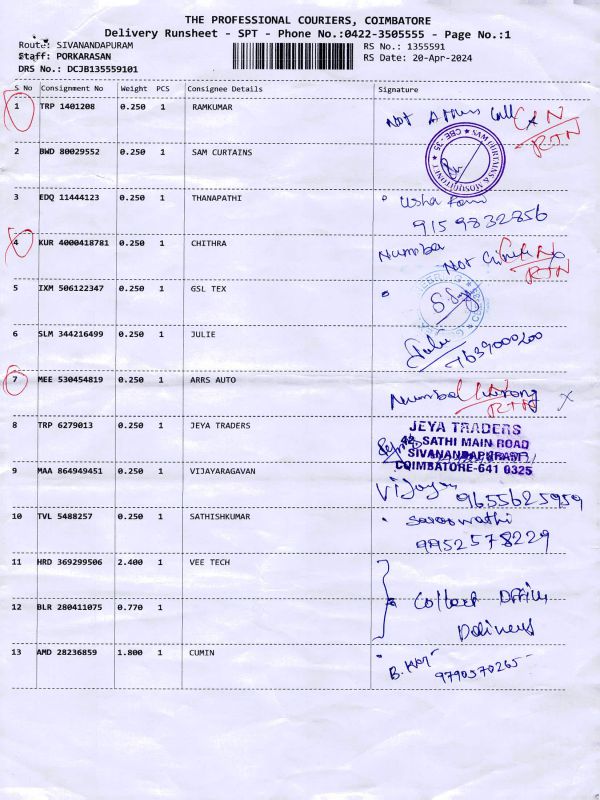 THE PROFESSIONAL COURIERS, COIMBATORE
Delivery Runsheet - SPT - Phone No.:0422-3505555 - Page No.:1
Route: SIVANANDAPURAM
RS No.: 1355591
Staff: PORKARASAN
RS Date: 20-Apr-2024
DRS No.: DCJB135559101
S No Consignment No Weight PCS Consignee Details Signature
1 TRP 1401208 0.250 1 RAMKUMAR Not call
RTN
2 BWD 80029552 0.250 1 SAM CURTAINS
SAM CURTAINS & MOSQUITONET
CBE - 35
3 EDQ 11444123 0.250 1 THANAPATHI Usha
9159832856
4 KUR 4000418781 0.250 1 CHITHRA Number
Not
RTN
5 IXM 506122347 0.250 1 GSL TEX
6 SLM 344216499 0.250 1 JULIE Julie
7639000200
7 MEE 530454819 0.250 1 ARRS AUTO Number wrong x
RTN
8 TRP 6279013 0.250 1 JEYA TRADERS JEYA TRADERS
SATHI MAIN ROAD
SIVANANDAPURAM
COIMBATORE-641 035
9 MAA 864949451 0.250 1 VIJAYARAGAVAN
Vijayan 9655625959
10 TVL 5488257 0.250 1 SATHISHKUMAR Saraswathi
9952578229
11 HRD 369299506 2.400 1 VEE TECH
12 BLR 280411075 0.770 1 Collect Office
Delivery
13 AMD 28236859 1.800 1 CUMIN B. 9790570265